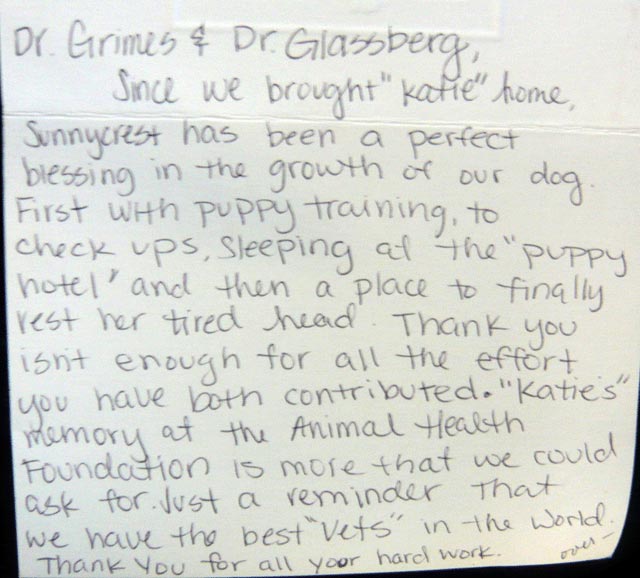 Dr. Grimes & Dr. Glassberg,
Since we brought "Katie" home,
Sunnycrest has been a perfect
blessing in the growth of our dog.
First with puppy training, to
check ups, sleeping at the "puppy
hotel" and then a place to finally
rest her tired head. Thank you
isn't enough for all the effort
you have both contributed. "Katie's"
memory at the Animal Health
Foundation is more that we could
ask for. Just a reminder that
we have the best "Vets" in the world.
Thank you for all your hard work.
over-